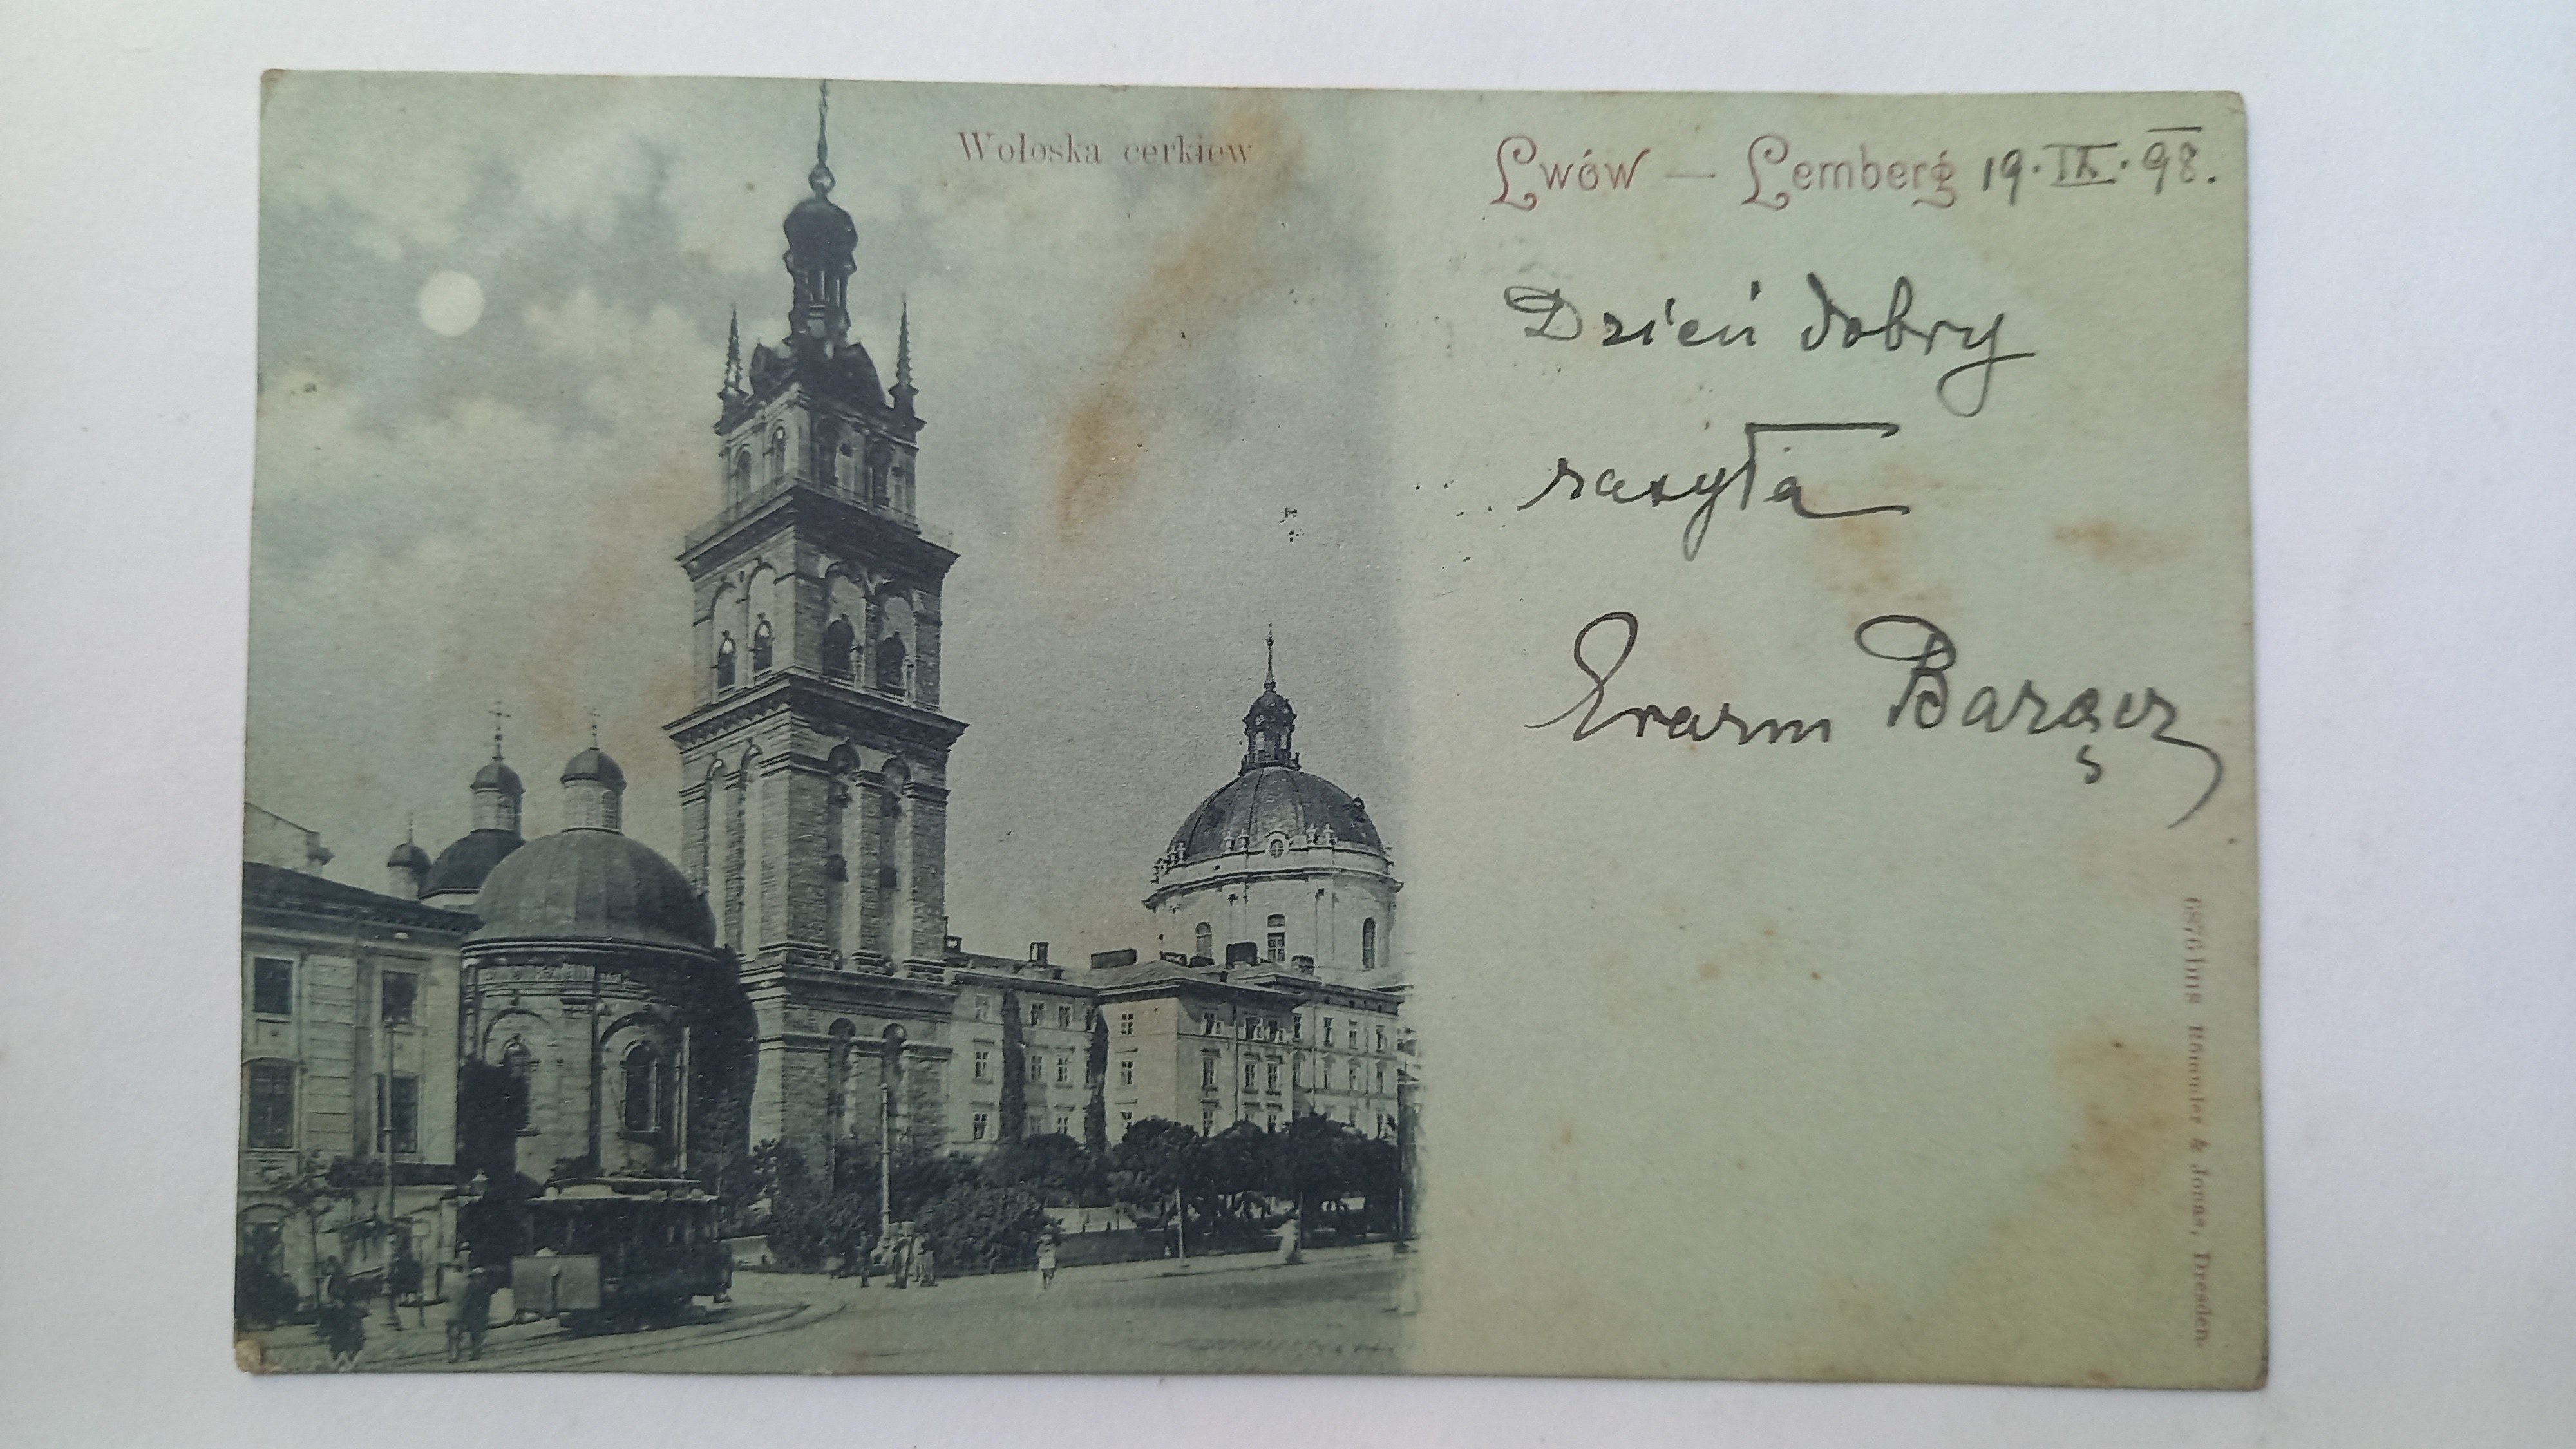 Wołoska cerkiew
Lwów — Lemberg 19. IX. 98.
Dzień dobry
zasyła
Erazm Barącz
6876 bris Römmler & Jonas, Dresden.